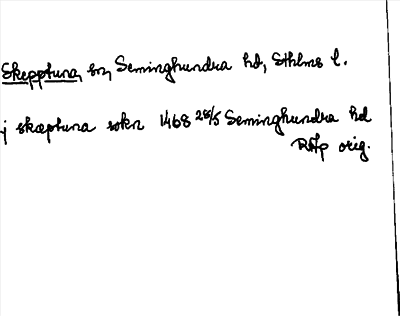 Skepptuna sn, Seminghundra hd, Sthlms l.
j skæptuna sokn 1468 28/5 Seminghundra hd
RAp orig.